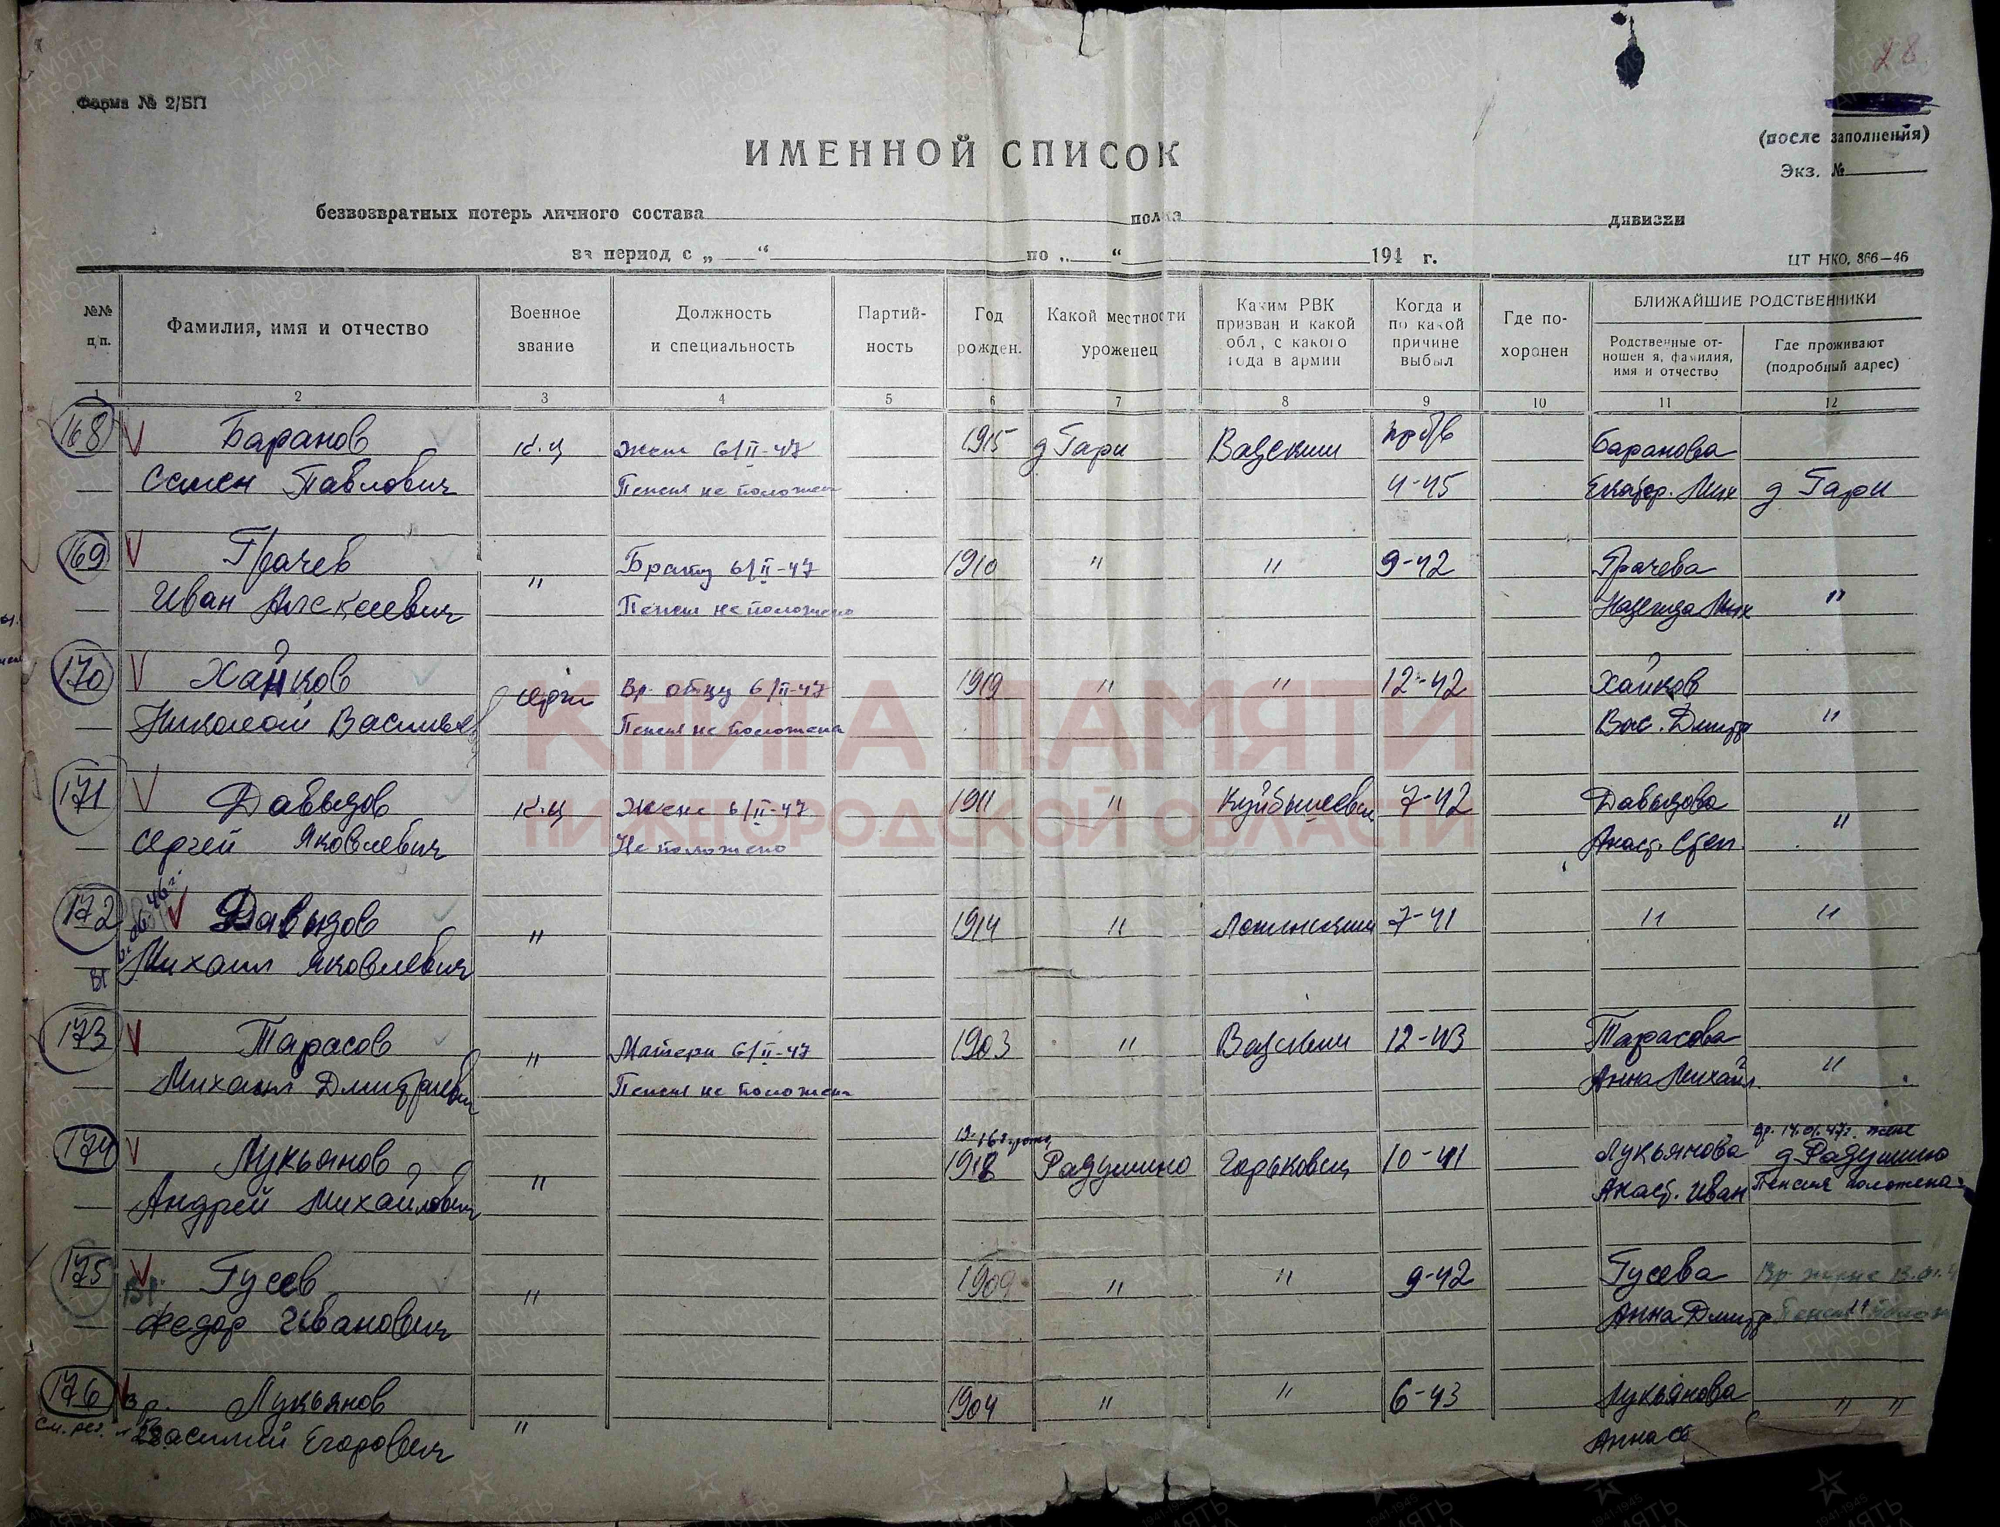 28
Форма № 2/БП
(после заполнения)
Экз. №
ИМЕННОЙ СПИСОК
безвозвратных потерь личного состава полка дивизии
за период с „ “ по „ “ 194 г.
ЦТ НКО, 866—46
№№ п/п.
Фамилия, имя и отчество
Военное звание
Должность и специальность
Партий-ность
Год рожден.
Какой местности уроженец
Каким РВК призван и какой обл., с какого года в армии
Когда и по какой причине выбыл
Где по-хоронен
БЛИЖАЙШИЕ РОДСТВЕННИКИ
Родственные от-ношен я, фамилия, имя и отчество
Где проживают (подробный адрес)
1 2 3 4 5 6 7 8 9 10 11 12
168 Баранов к.ц жене 6/II-47 1915 д Гари Вадским пр б/в Баранова
Семен Павлович Пенсия не положен 4-45 Екатер. Мих д Гари
169 Грачев " Брату 6/II-47 1910 " " 9-42 Грачева
Иван Алексеевич Пенсия не положено Надежда Мих "
170 Хайков серж Вр. отцу 6/II-47 1919 " " 12-42 Хайков
Николай Василье Пенсия не положена Вас. Дмитр "
171 Давыдов к.ц Жене 6/II-47 1911 " Куйбышевск 7-42 Давыдова
Сергей Яковлевич Не положено Анаст. Степ. "
172 Давыдов " 1914 " 7-41 " "
Михаил Яковлевич
173 Тарасов " Матери 6/II-47 1903 " Вадским 12-43 Тарасова
Михаил Дмитриевич Пенсия не положен Анна Михайл. "
174 Лукьянов " 1918 Радушино Горьковск 10-41 Лукьянова вр. 14.01.47г. жене д Радушино
Андрей Михайлович Анаст. Иван Пенсия положена
175 Вр. Гусев " 1909 " " 9-42 Гусева Вр. жене 13.01.4
Федор Иванович Анна Дмитр Пенсия "
176 Вр. Лукьянов " 1904 " " 6-43 Лукьянова " "
См. рег. Василий Егорович Анна
КНИГА ПАМЯТИ
НИЖЕГОРОДСКОЙ ОБЛАСТИ
ПАМЯТЬ НАРОДА
1941-1945